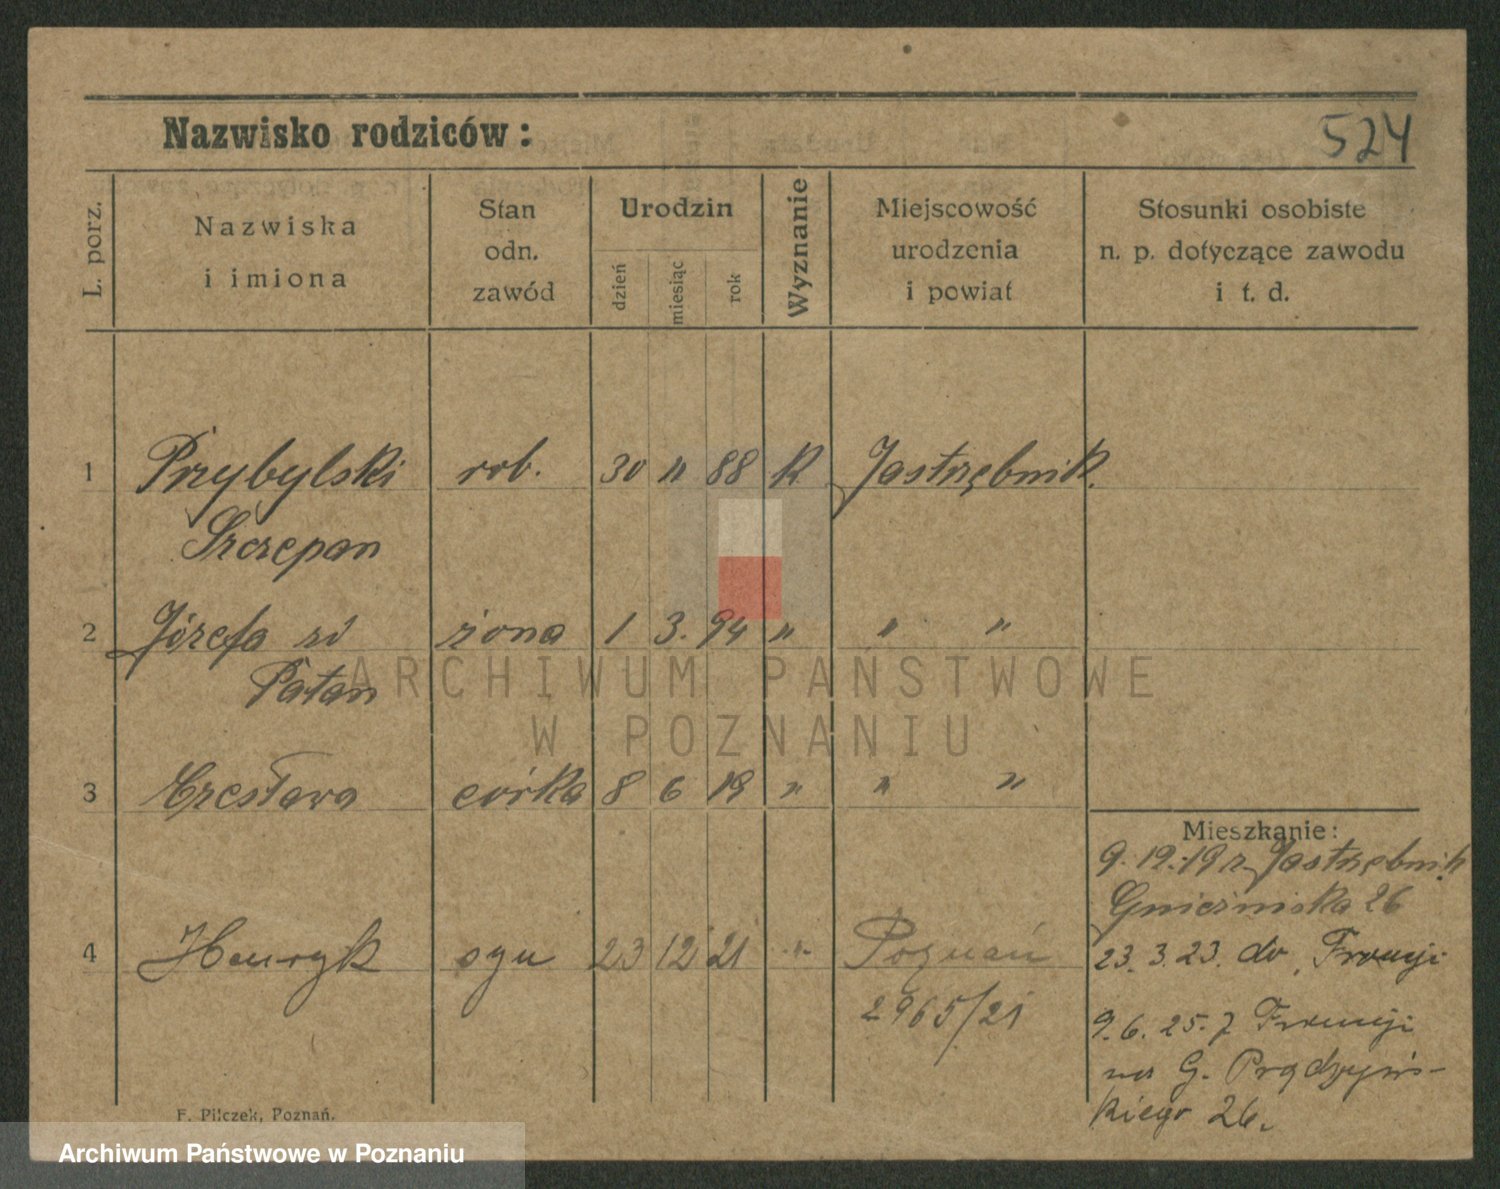 Nazwisko rodziców:
524
L. porz.
Nazwiska
i imiona
Stan
odn.
zawód
Urodzin
dzień
miesiąc
rok
Wyznanie
Miejscowość
urodzenia
i powiat
Stosunki osobiste
n. p. dotyczące zawodu
i t. d.
1 Przybylski rob. 30 11 88 K Jastrzębnik.
Szczepan
2 Józefa zd żona 1 3. 94 " " "
Patan
3 Czesława córka 8 6 19 " " "
4 Henryk syn 23 12 21 " Poznań
2965/21
Mieszkanie:
9. 12. 19 r. Jastrzębnik
Gnieźnieńska 26
23. 3. 23. do Francji
9. 6. 25. z Francji
na G. Prądzyńs-
kiego 26.
F. Pilczek, Poznań.
ARCHIWUM PAŃSTWOWE
W POZNANIU
Archiwum Państwowe w Poznaniu